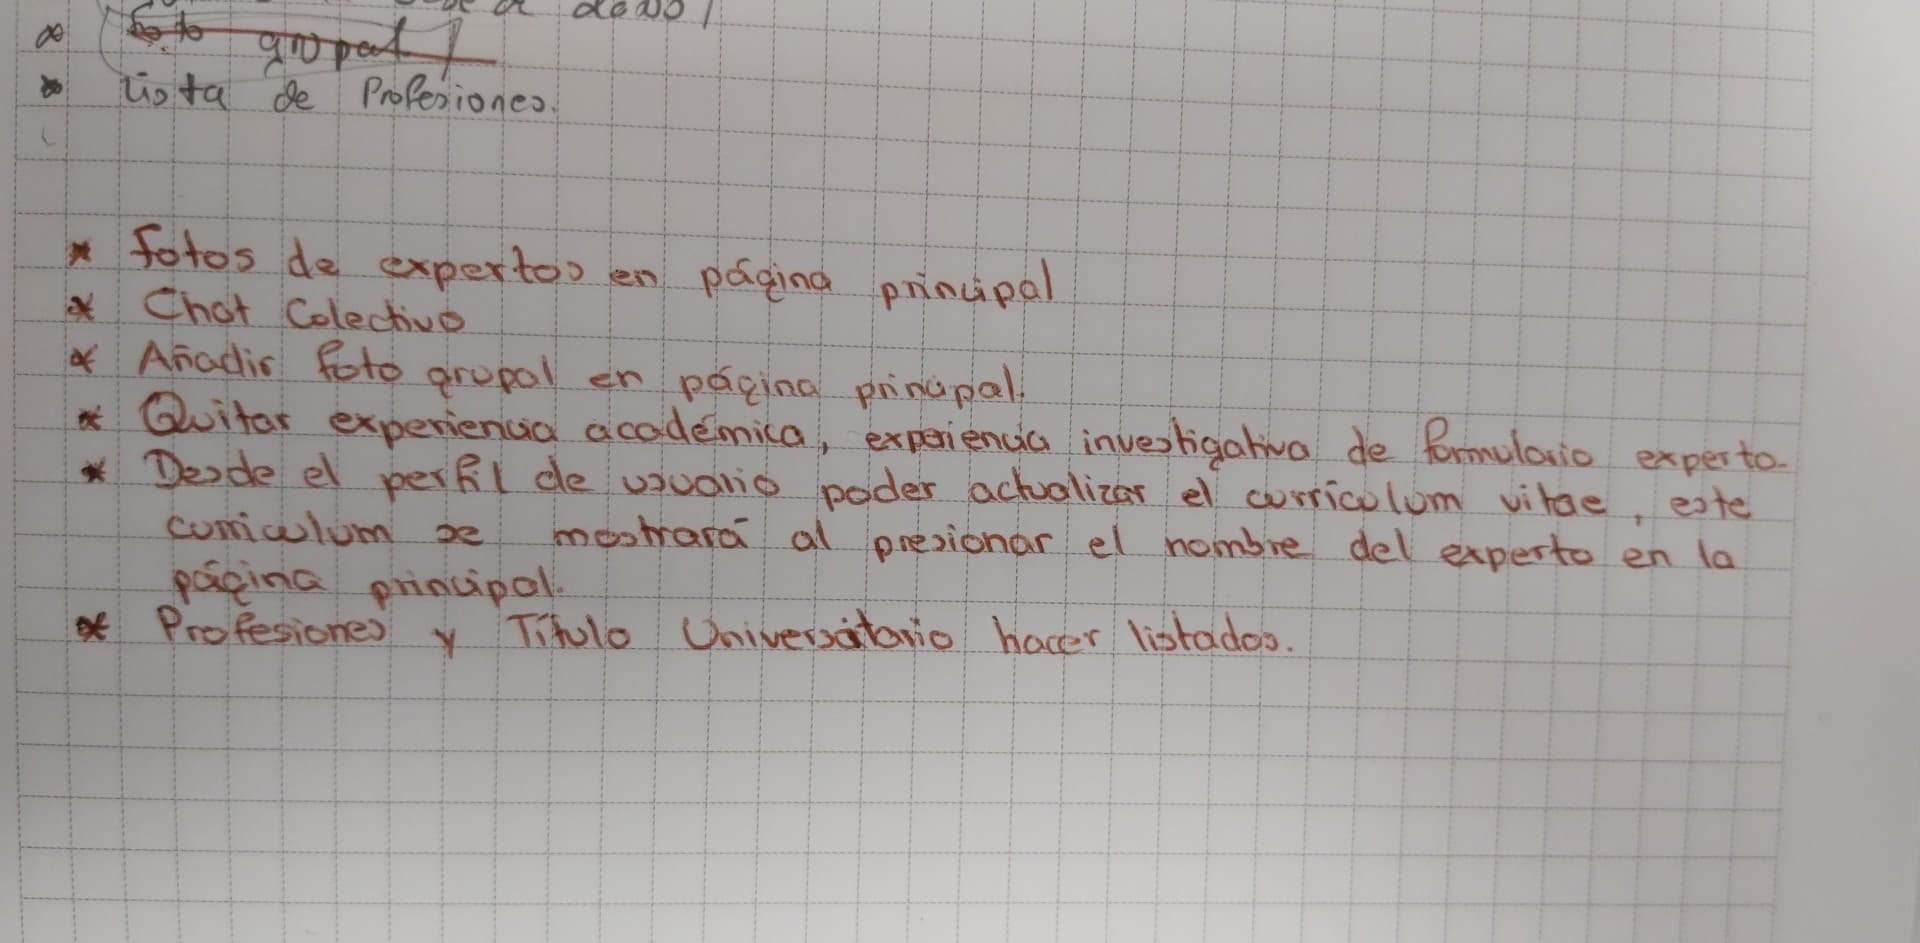 * foto grupal
* Lista de Profesiones.
* fotos de expertos en página principal
* Chat Colectivo
* Añadir foto grupal en página principal.
* Quitar experiencia académica, experiencia investigativa de formulario experto.
* Desde el perfil de usuario poder actualizar el curriculum vitae, este
curriculum se mostrará al presionar el nombre del experto en la
página principal.
* Profesiones y Título Universitario hacer listados.